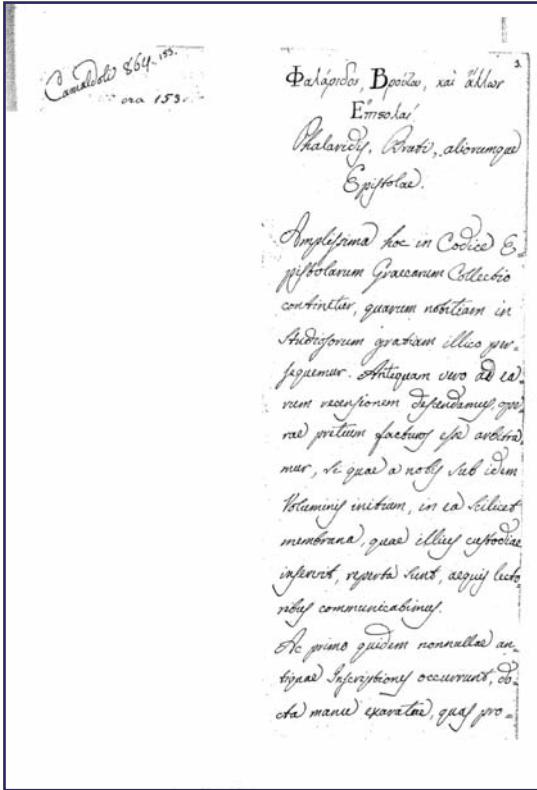 Camaldoli 864. 153.
ora 153
3.
Φαλάριδος, Βρούτου, καὶ ἄλλων
Ἐπιστολαί.
Phalaridis, Bruti, aliorumque
Epistolae.
Amplissima hoc in Codice E=
pistolarum Graecarum Collectio
continetur, quarum notitiam in
Studiosorum gratiam illico per=
sequemur. Antequam vero ad ea=
rum recensionem descendamus, ope=
rae pretium facturos esse arbitra=
mur, si quae a nobis sub idem
Voluminis initium, in ea scilicet
membrana, quae illius custodiae
inservit, reperta sunt, aequis lecto=
ribus communicabimus.
Ac primo quidem nonnullae an=
tiquae Inscriptiones occurrunt, do=
cta manu exaratae, quas pro=